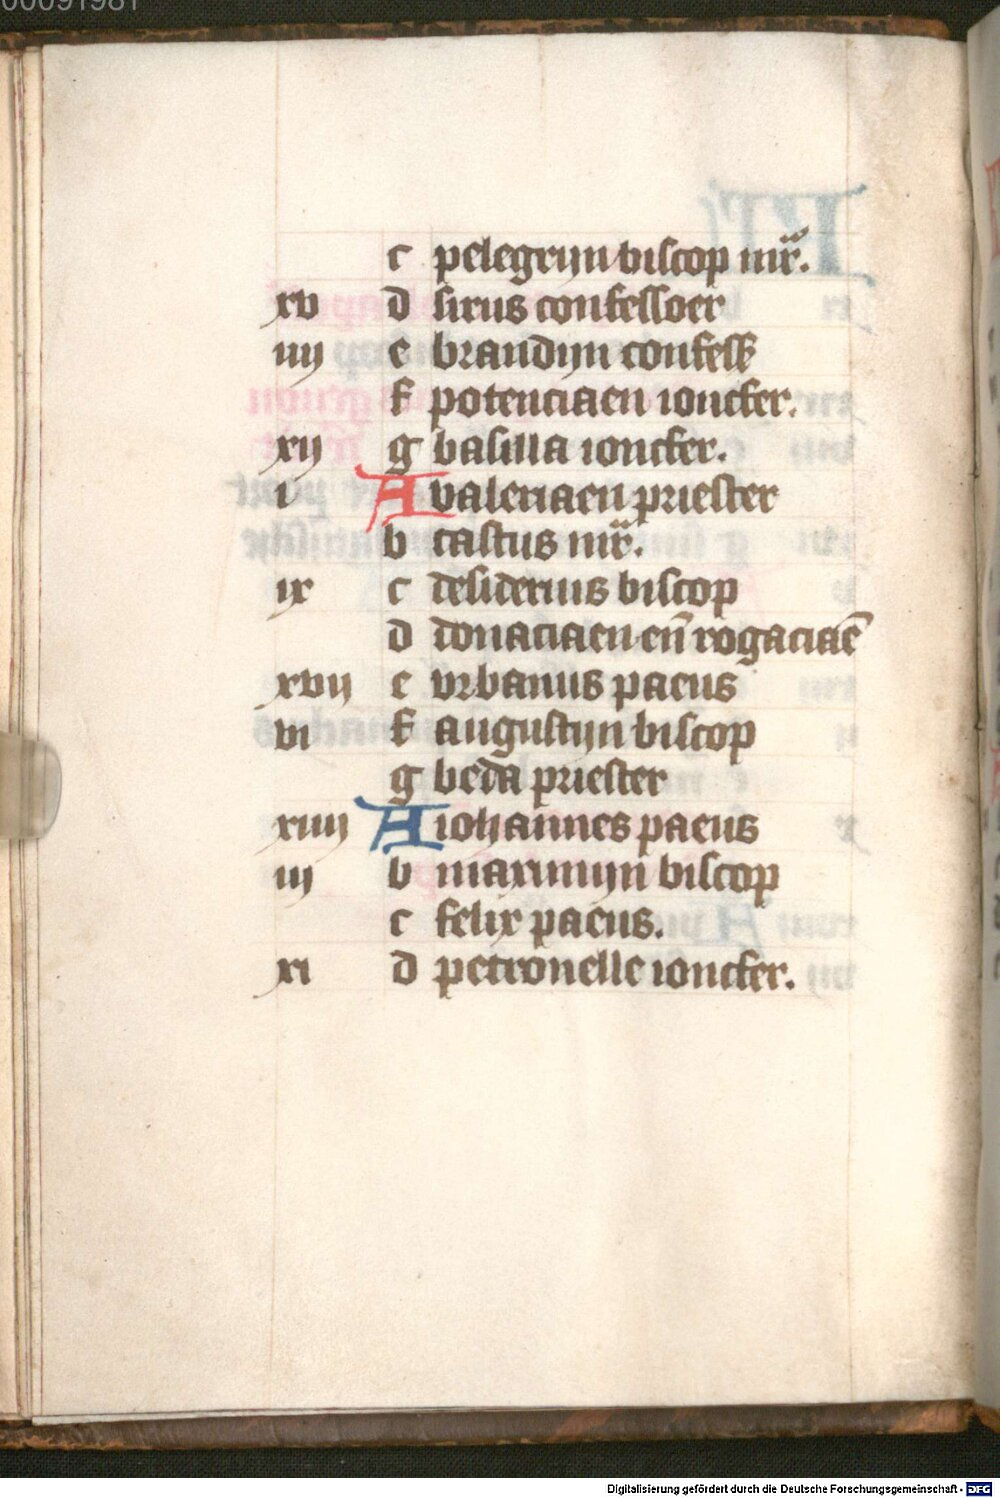 00091981
c pelegrijn biscop mr̄.
xv d sirus confessoer
iiij e brandijn confess
f potenciaen ioncfer.
xij g basilla ioncfer.
i A valeriaen priester
b castus mr̄.
ix c desiderius biscop
d donaciaen en̄ rogaciaē
xvij e vrbanus paeus
vi f augustijn biscop
g beda priester
xiiij A iohannes paeus
iij b maximijn biscop
c felix paeus.
xi d petronelle ioncfer.
Digitalisierung gefördert durch die Deutsche Forschungsgemeinschaft - DFG